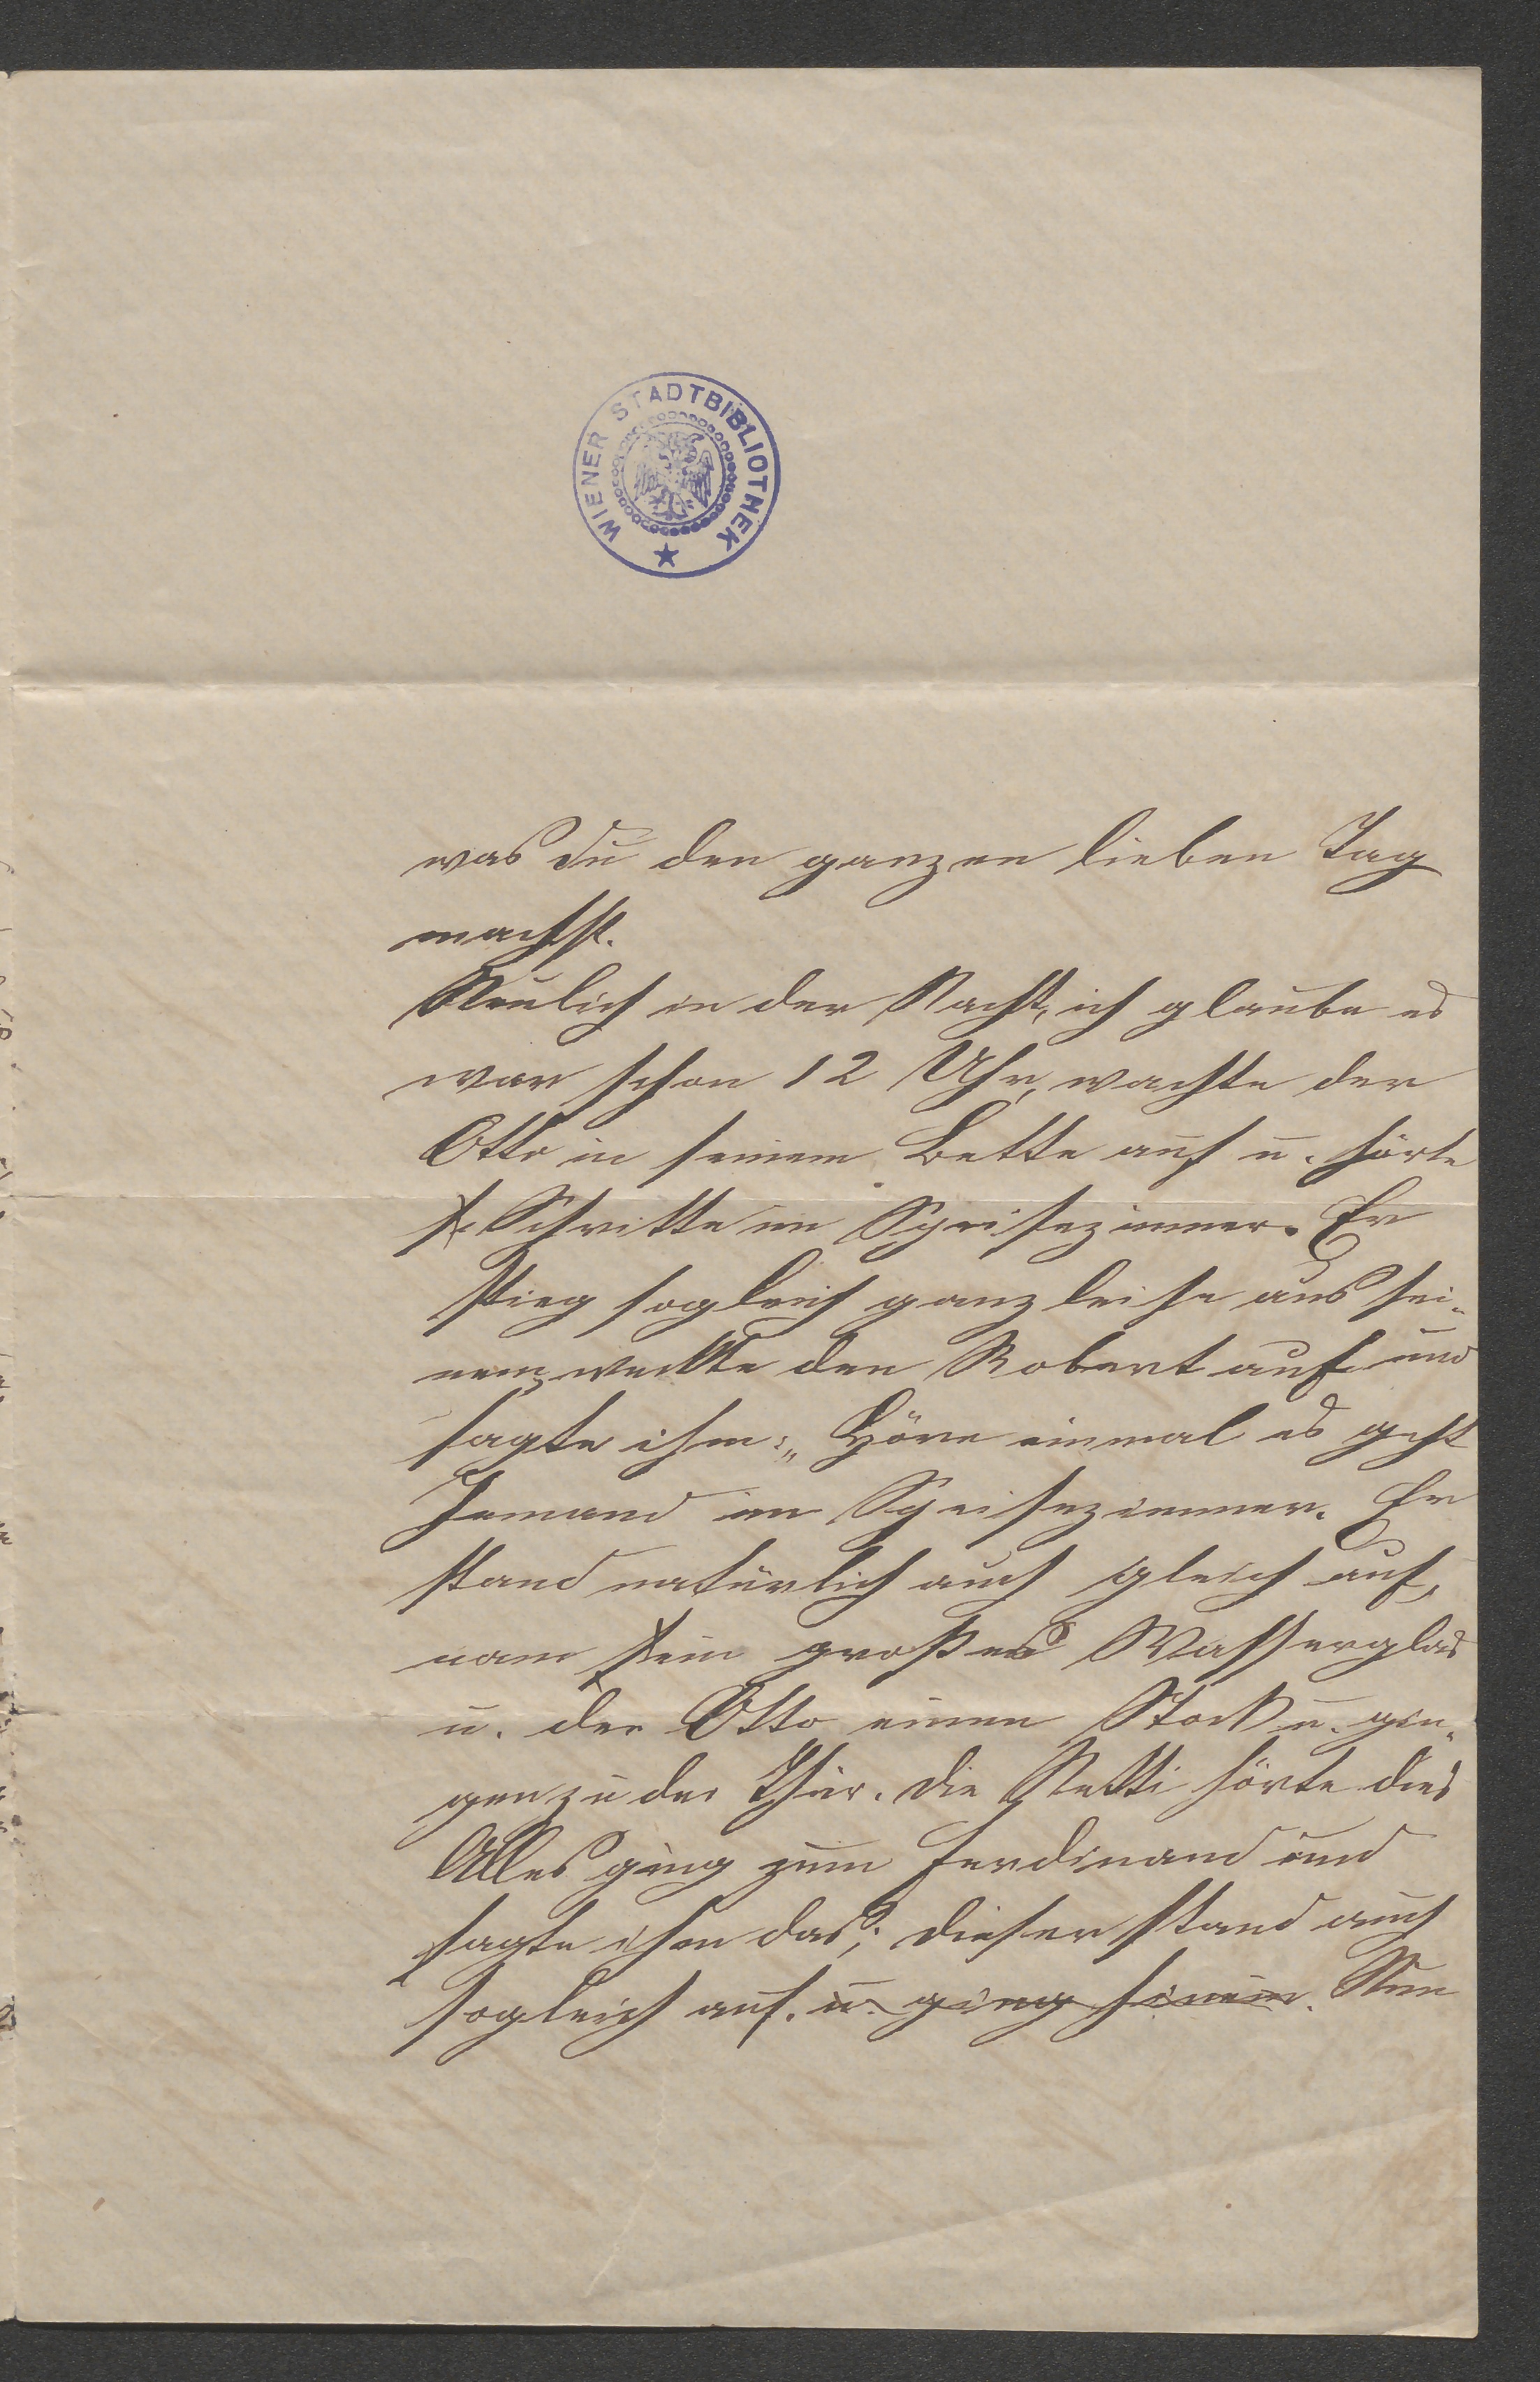 WIENER STADTBIBLIOTHEK
was Du den ganzen lieben Tag
machst.
Neulich in der Nacht, ich glaube es
war schon 12 Uhr, wachte der
Otto in seinem Bette auf u. hörte
Schritte im Speisezimmer. Er
stieg sogleich ganz leise aus sei-
nem, weckte den Robert auf und
sagte ihm: „Höre einmal es geht
Jemand im Speisezimmer. Er
stand natürlich auch gleich auf,
nam ein großes Wasserglas
u. der Otto einen Stock u. gin-
gen zu der Thür. Die Netti hörte dies
Alles ging zum Ferdinand und
sagte ihm das; dieser stand auch
sogleich auf. u. ging hinein. Nun